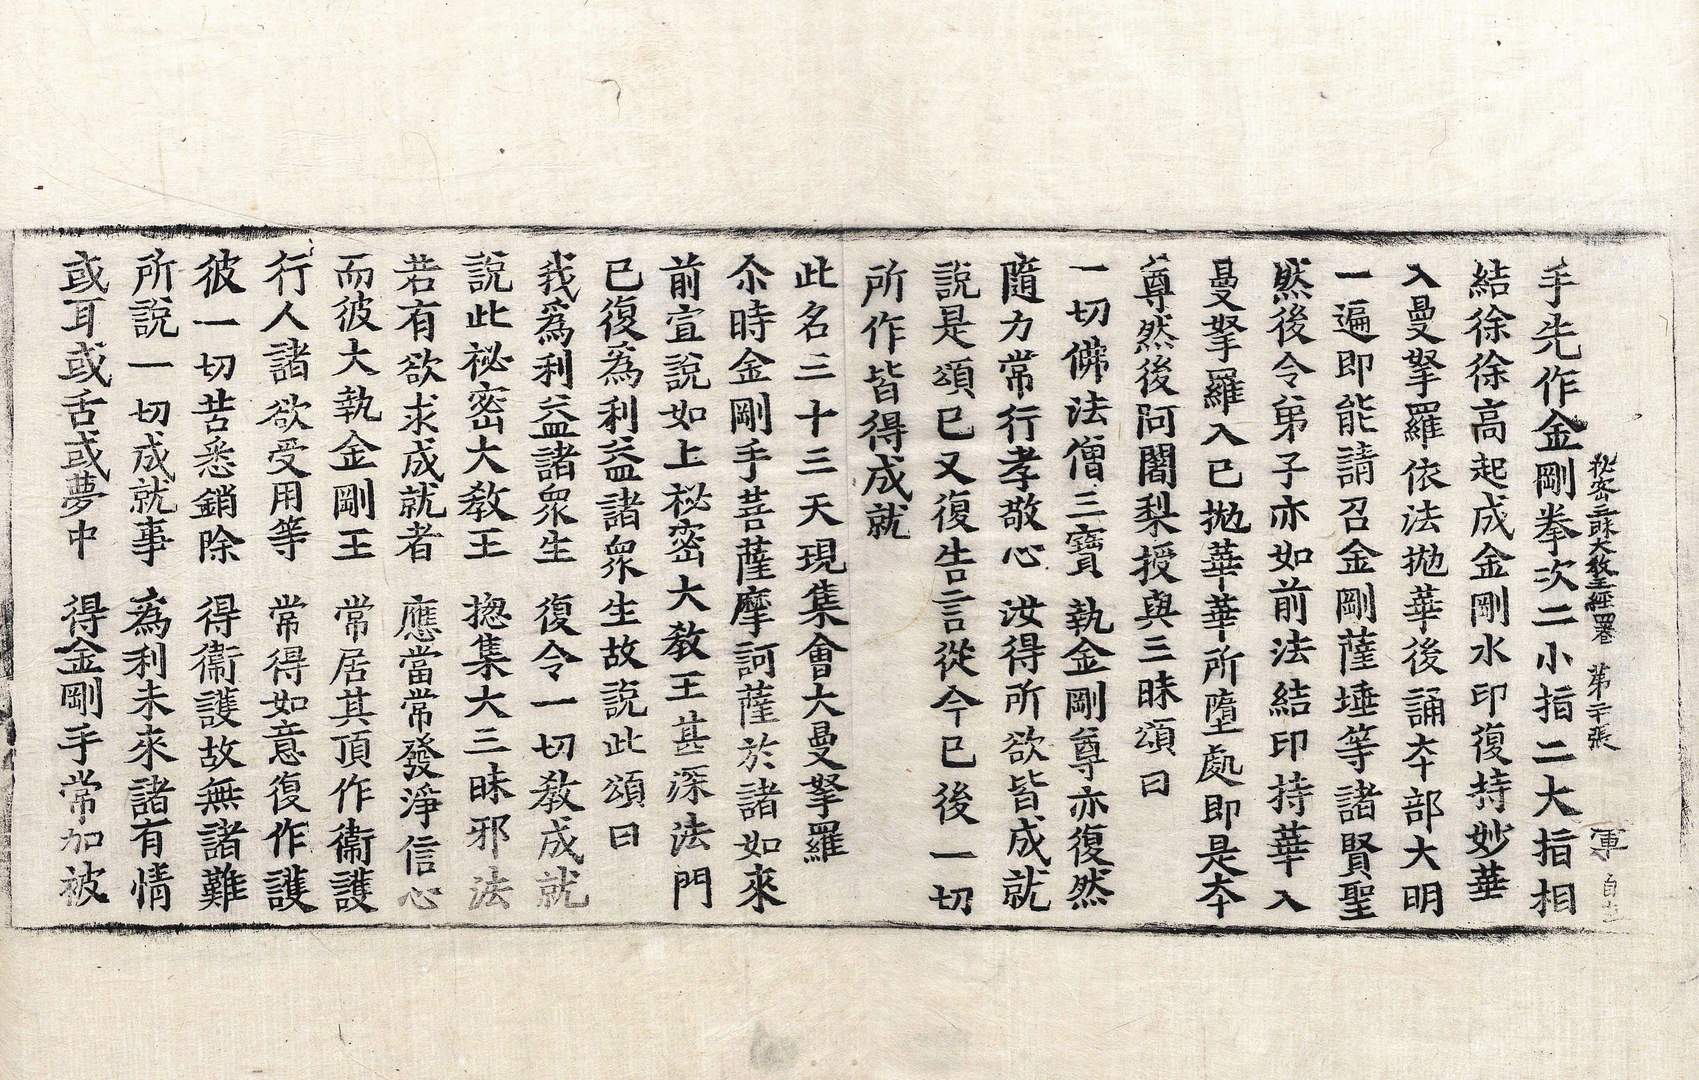 秘密三昧大教王經四卷 第二十張 軍
手先作金剛拳次二小指二大指相
結徐徐高起成金剛水印復持妙華
入曼拏羅依法拋華後誦夲部大明
一遍即能請召金剛薩埵等諸賢聖
然後令弟子亦如前法結印持華入
曼拏羅入已拋華華所墮處即是夲
尊然後阿闍梨授與三昧頌曰
一切佛法僧三寶 執金剛尊亦復然
隨力常行孝敬心 汝得所欲皆成就
說是頌已又復告言從今已後一切
所作皆得成就
此名三十三天現集會大曼拏羅
尒時金剛手菩薩摩訶薩於諸如來
前宣說如上祕密大教王甚深法門
已復爲利益諸衆生故說此頌曰
我爲利益諸衆生 復令一切教成就
說此祕密大教王 揔集大三昧邪法
若有欲求成就者 應當常發淨信心
而彼大執金剛王 常居其頂作衞護
行人諸欲受用等 常得如意復作護
彼一切苦悉銷除 得衞護故無諸難
所說一切成就事 爲利未來諸有情
或耳或舌或夢中 得金剛手常加被